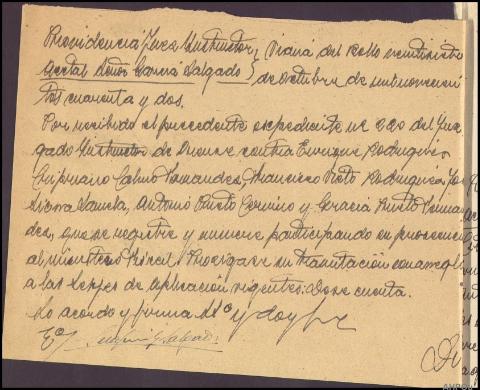 Providencia Juez Instructor } Viana del Bollo veintisiete
acctal Señor García Salgado } de octubre de mil novecien
tos cuarenta y dos.
Por recibido el precedente expediente nº 220 del Juz
gado Instructor de Orense contra Enrique Rodríguez
Cipriano Calvo Fernandez, Francisco Prieto Rodriguez, Jo
Sierra Dauela, Antonio Prieto Cervino y Gracia Prieto Fernan
dez, que se registre y numere participando su
al ministerio Fiscal. Prosigase su tramitación con arregl
a las Leyes de aplicación vigentes: dese cuenta.
Lo acordo y firma Sª y doy fe
E/